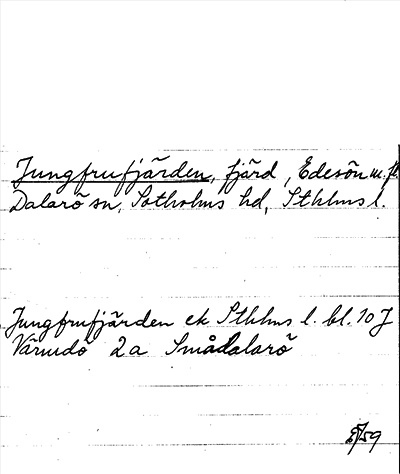 Jungfrufjärden, fjärd, Edesön m. fl.
Dalarö sn, Sotholms hd, Sthlms l.
Jungfrufjärden ek Sthlms l. bl. 10 J
Värmdö 2a Smådalarö